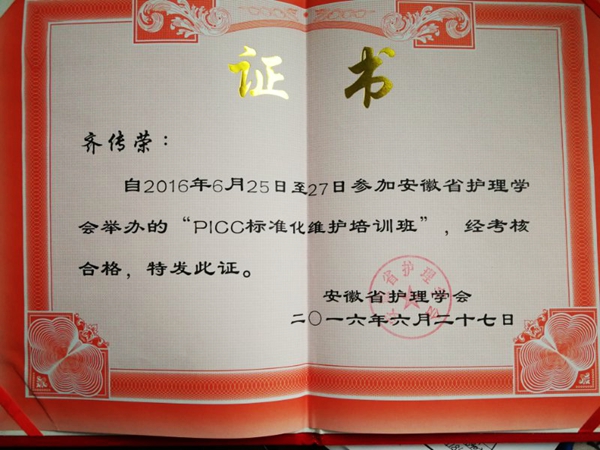 证 书
齐传荣：
自2016年6月25日至27日参加安徽省护理学
会举办的“PICC标准化维护培训班”，经考核
合格，特发此证。
安徽省护理学会
二〇一六年六月二十七日